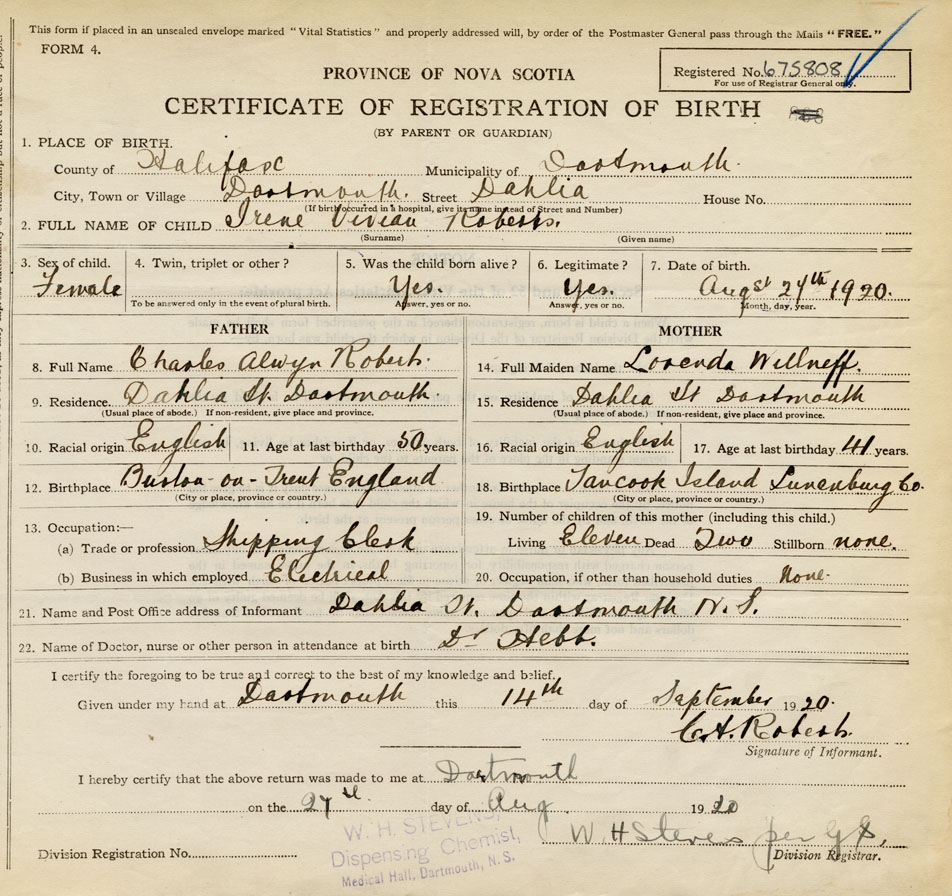 This form if placed in an unsealed envelope marked "Vital Statistics" and properly addressed will, by order of the Postmaster General pass through the Mails "FREE."
FORM 4.
Registered No. 675808
For use of Registrar General only.
PROVINCE OF NOVA SCOTIA
CERTIFICATE OF REGISTRATION OF BIRTH
(BY PARENT OR GUARDIAN)
1. PLACE OF BIRTH.
County of Halifax Municipality of Dartmouth.
City, Town or Village Dartmouth. Street Dahlia House No.
(If birth occurred in a hospital, give its name instead of Street and Number)
2. FULL NAME OF CHILD Irene Vivian Roberts.
(Surname) (Given name)
3. Sex of child. 4. Twin, triplet or other? 5. Was the child born alive? 6. Legitimate? 7. Date of birth.
Female Yes. Yes. Augst 24th 1920.
To be answered only in the event of plural birth. Answer, yes or no. Answer, yes or no. Month, day, year.
FATHER MOTHER
8. Full Name Charles Alwyn Roberts. 14. Full Maiden Name Lorenda Willneff.
9. Residence. Dahlia St. Dartmouth. 15. Residence Dahlia St Dartmouth
(Usual place of abode.) If non-resident, give place and province. (Usual place of abode.) If non-resident, give place and province.
10. Racial origin English 11. Age at last birthday 50 years. 16. Racial origin English 17. Age at last birthday 41 years.
12. Birthplace Burton-on-Trent England 18. Birthplace Tancook Island Lunenburg Co.
(City or place, province or country.) (City or place, province or country.)
13. Occupation:— 19. Number of children of this mother (including this child.)
(a) Trade or profession Shipping Clerk Living Eleven Dead Two Stillborn none.
(b) Business in which employed Electrical 20. Occupation, if other than household duties None.
21. Name and Post Office address of Informant Dahlia St. Dartmouth N.S.
22. Name of Doctor, nurse or other person in attendance at birth Dr Hebb.
I certify the foregoing to be true and correct to the best of my knowledge and belief.
Given under my hand at Dartmouth this 14th day of September 1920.
C.A. Roberts.
Signature of Informant.
I hereby certify that the above return was made to me at Dartmouth
on the 27 day of Aug 1920
W. H. STEVENS,
Dispensing Chemist,
Medical Hall, Dartmouth, N.S.
W. H Stevens per
Division Registration No. Division Registrar.